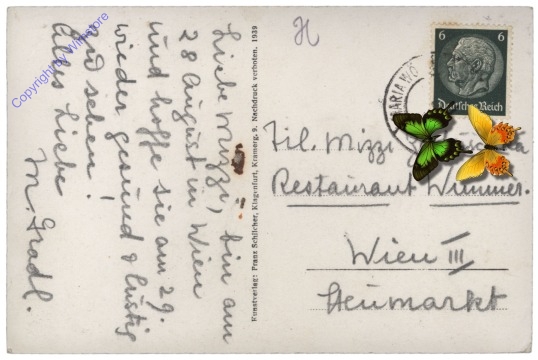 Copyright by Wienstore
Liebe Mizzi, bin am
28 August in Wien
und hoffe sie am 29.
wieder gesund & lustig
zu sehen!
Alles Liebe
M. Gradl.
Kunstverlag: Franz Schilcher, Klagenfurt, Kramerg. 9. Nachdruck verboten. 1939
H
6 6
Deutsches Reich
MARIA WÖ
Mizzi
Restaurant Wimmer.
Wien III
Heumarkt